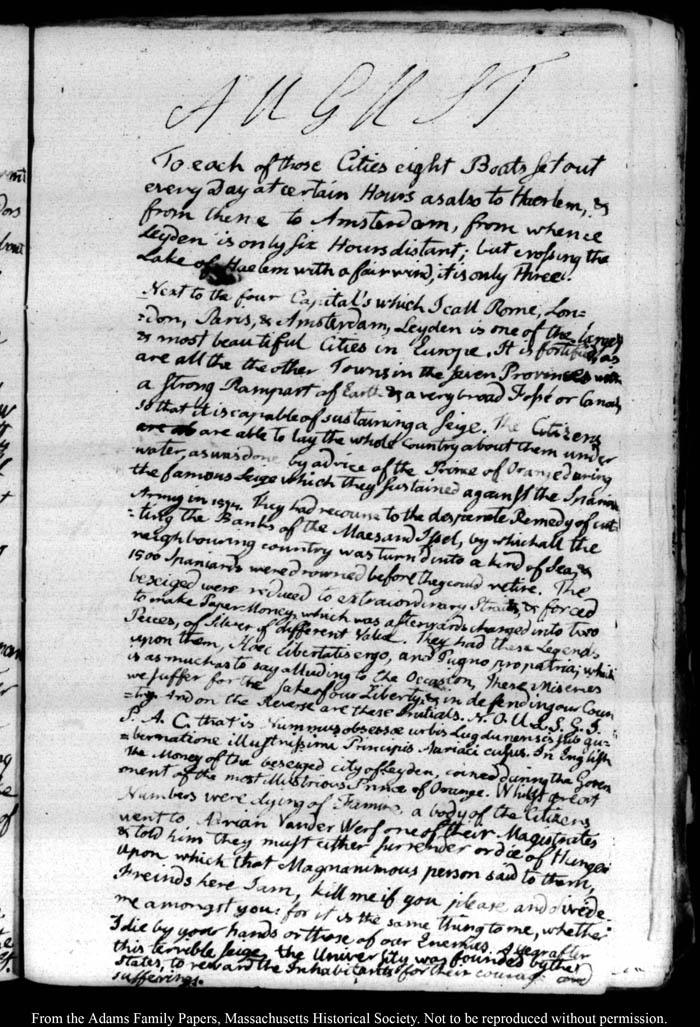 AUGUST
To each of those Cities eight Boats set out
every Day at certain Hours as also to Haerlem, &
from thence to Amsterdam, from whence
Leyden is only six Hours distant; but crossing the
Lake of Haelem with a fair wind, it is only three.
Next to the four Capital's which I call Rome, Lon=
=don, Paris, & Amsterdam, Leyden is one of the largest
& most beautiful Cities in Europe. It is fortified, as
are all the the other Towns in the seven Provinces with
a strong Rampart of Earth & a very broad Fosse or Canal,
so that it is capable of sustaining a Seige. The Citizens
are able to lay the whole Country about them under
water, as was done by advice of the Prince of Orange during
the famous Seige which they sustained against the Spanish
Army in 1574. They had recourse to the desparate Remedy of cut=
=ting the Banks of the Maes and Issel, by which all the
neighbouring country was turn'd into a kind of Sea, &
1500 Spaniards were drowned before they could retire. The
beseiged were reduced to extraiordinary Straits, & forced
to make Paper-Money, which was afterwards changed into two
Peices, of Silver of different Value. They had these Legends
upon them, Haec libertatis ergo, and Pugno pro patria; which
is as much as to say alluding to the Occasion, These Miseries
we suffer for the sake of our Liberty, & in defending our Coun
=try. And on the Reverse are these Initials. N. O. U. L. S. G. I.
P. A. C. that is Nummus obsessæ urbis Lugdunensis sub gu=
=bernatione illustrissimi Principis Auriaci cusus. In English
the Money of the beseiged city of Leyden, coined during the Govern
=ment of the most illustrious Prince of Orange. Whilst great
Numbers were dying of Famine, a body of the Citizens
went to Adrian Vander Werf one of their Magistrates
& told him they must either surrender or die of Hunger
upon which that Magnanimous person said to them,
Freinds here I am, kill me if you please and divide
me amongst you: for it is the same thing to me, whether
I die by your hands or those of our Enemies. A Year after
this terrible Seige, the University was founded by the
States, to reward the Inhabitants for their courage and
sufferings.
From the Adams Family Papers, Massachusetts Historical Society. Not to be reproduced without permission.